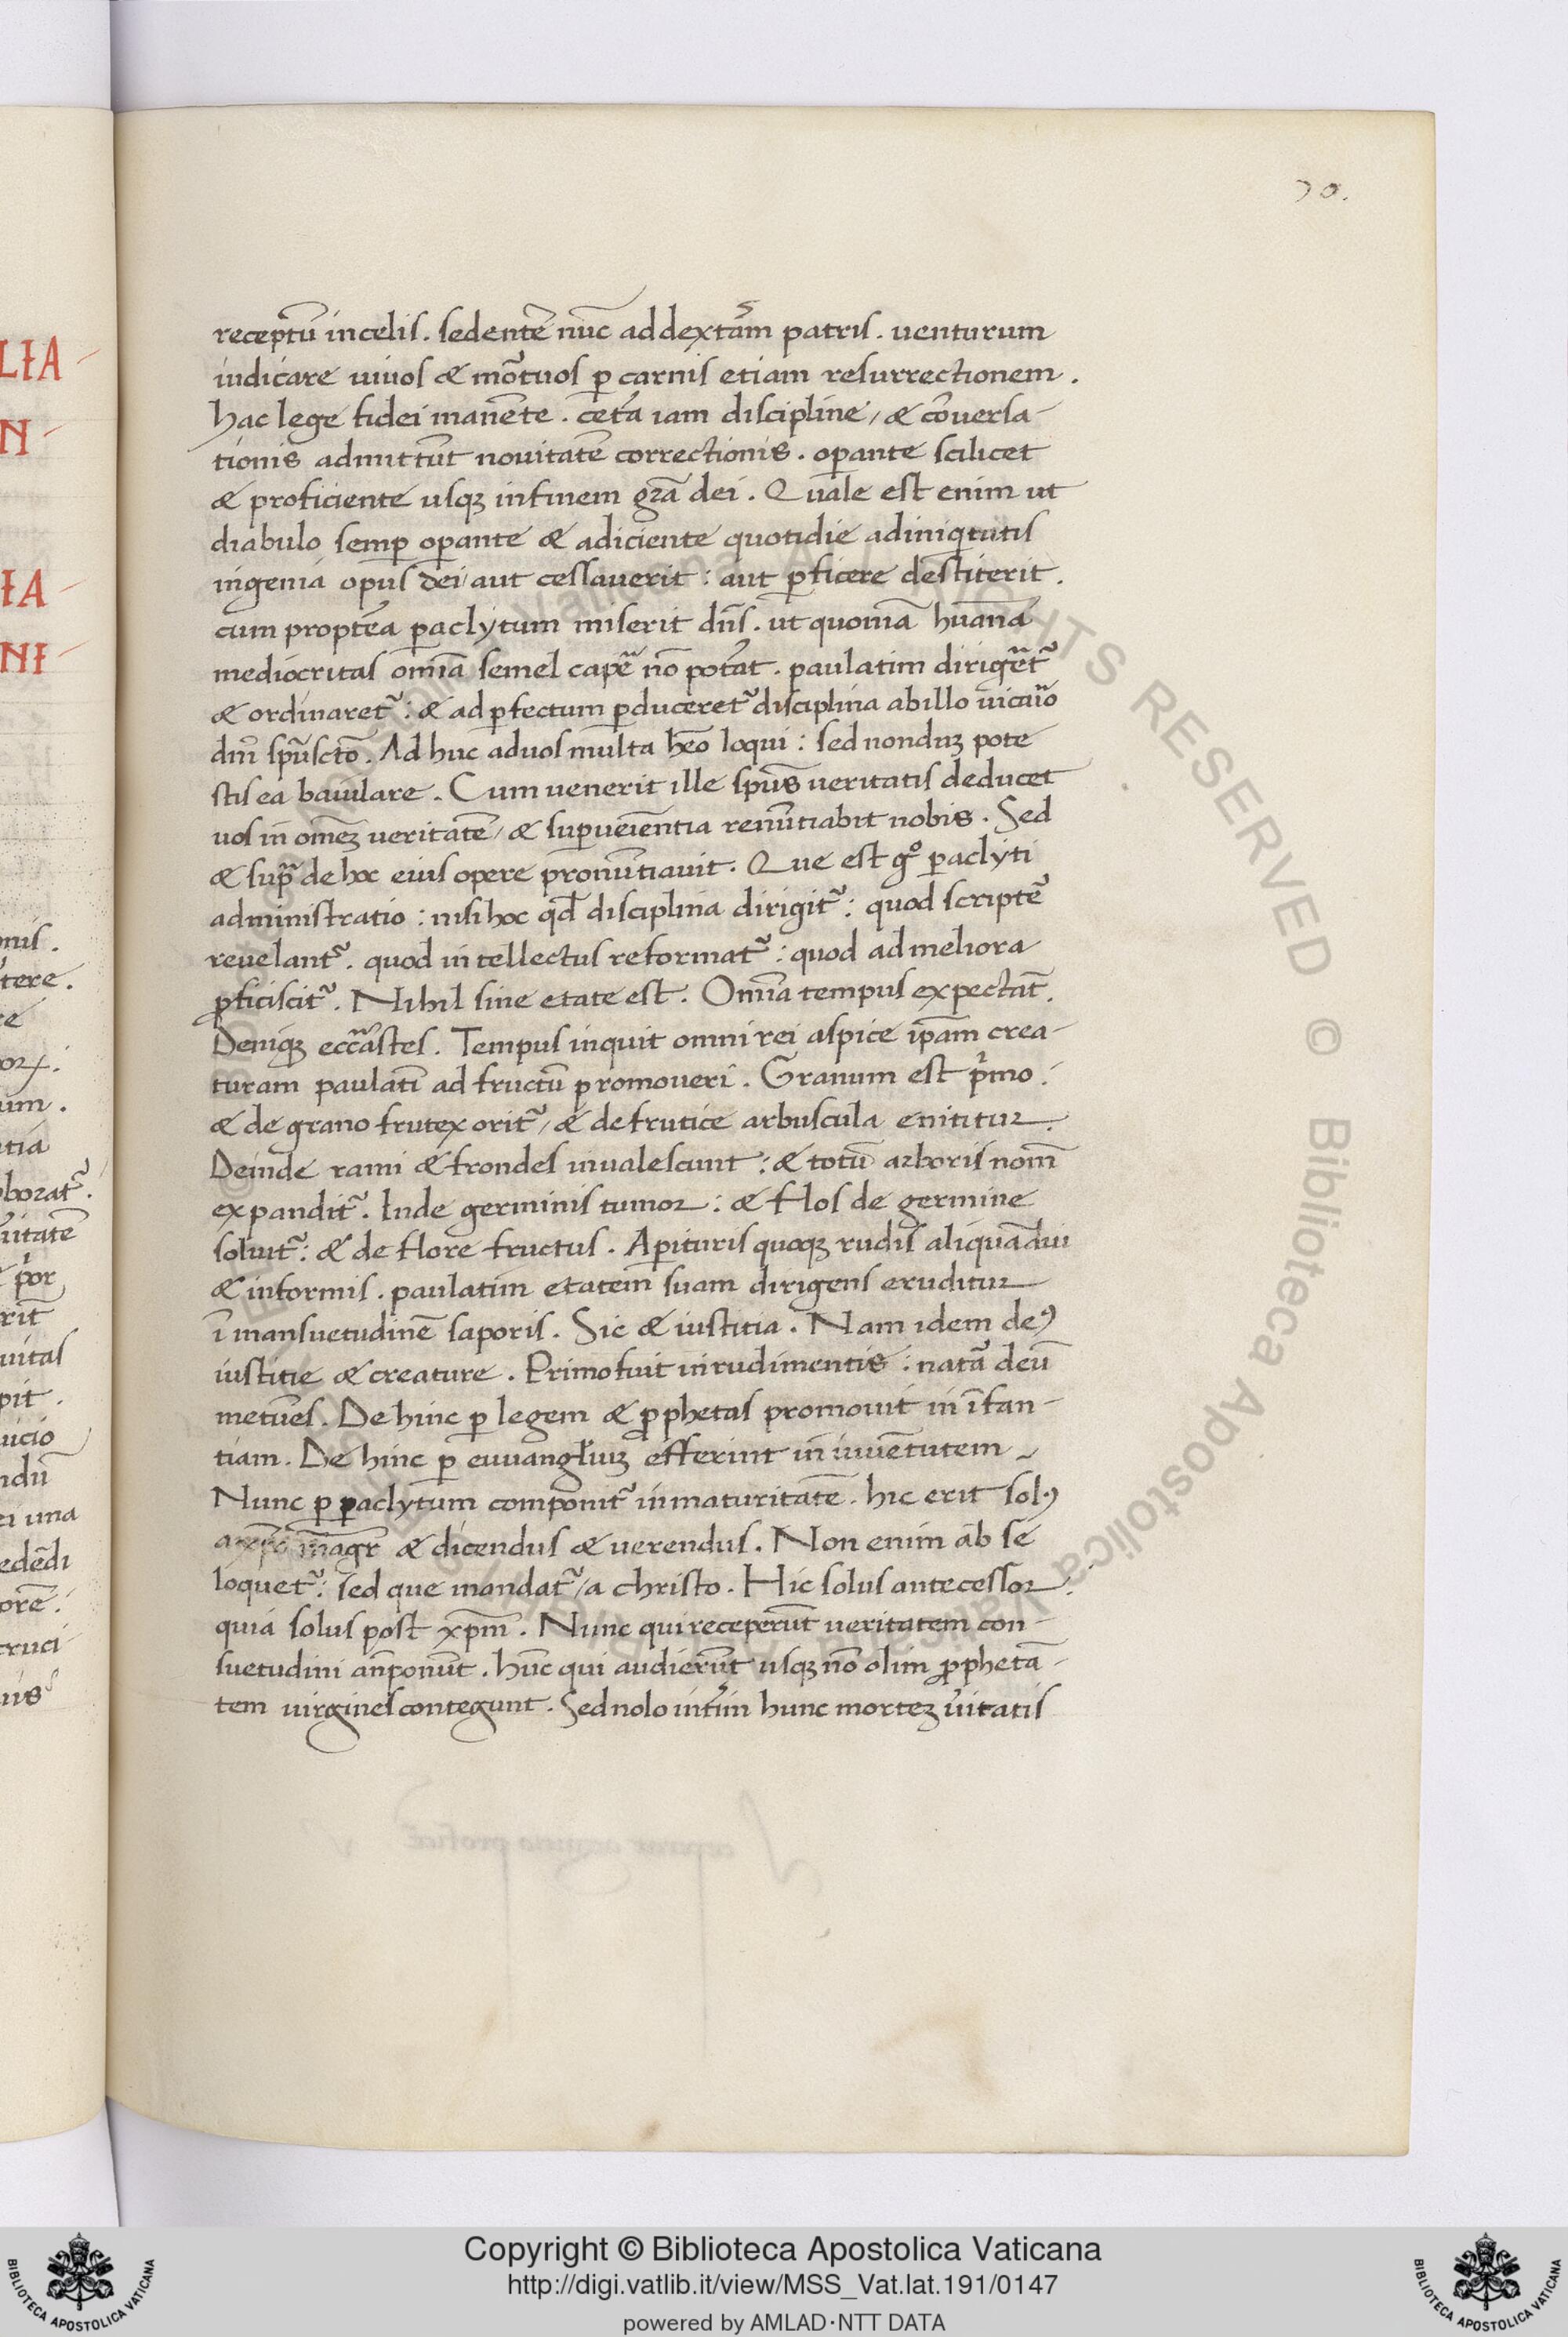 70.
receptū in celis. sedentē nūc ad dextāꝫm patris. venturum
iudicare uiuos & mo᷑tuos ꝑ carnis etiam resurrectionem.
hac lege fidei manēte. cet᷑a iam discipline, & cōuersa-
tionis admittūt nouitatē correctionis. oꝑante scilicet
& proficiente usqꝫ in finem gr̄a dei. Quale est enim ut
diabulo semꝑ oꝑante & adiciente quotidie ad iniqͥtatis
ingenia opus dei, aut cessauerit: aut ꝑficere destiterit.
cum propt᷑ea ꝑaclytum miserit dn̄s. ut quoniā hūana
mediocritas om̄ia semel cap᷑e nō pot᷑at. paulatim dirig᷑et᷑
& ordinaret᷑: & ad ꝑfectum ꝑduceret᷑ disciplina ab illo uicaꝛ᷑io
dn̄i sp̄u sctō. Ad huc ad uos multa h̄eo loqui: sed nonduꝫ pote
stis ea baiulare. Cum uenerit ille sp̄us veritatis deducet
uos in om̄eꝫ veritatē, & suꝑueīentia renūtiabit nobis. Sed
& sup᷑ de hoc eius opere pronūtiauit. Que est gͦ ꝑaclyti
administratio: nisi hoc qd̄ disciplina dirigit᷑: quod scripte᷑
reuelant᷑. quod intellectus reformat᷑: quod ad meliora
ꝓficiscit᷑. Nihil sine etate est. Om̄ia tempus expectāt.
Deniqꝫ ecc᷑astes. Tempus inquit omni rei aspice ip̄am crea-
turam paulatī ad fructū promoueri. Granum est pͥmo:
& de grano frutex orit᷑, & de frutice arbuscula enititur.
Deinde rami & frondes inualescunt: & totū arboris nom̄
expandit᷑. Inde germinis tumor: & flos de germine
soluit᷑: & de flore fructus. Aꝑituris quoqꝫ rudis aliquādiu
& informis. paulatim etatem suam dirigens eruditur
ī mansuetudinē saporis. Sic & iustitia. Nam idem deꝰ
iustitie & creature. Primo fuit in rudimentis: nat᷑a deū
metuēs. De hinc ꝑ legem & ꝓphetas promouit in īfan-
tiam. De hinc ꝑ euuangl̄iuꝫ efferint in iuuētutem
Nunc ꝑ ꝑaclytum componit᷑ in maturitatē. hic erit solꝰ
m̄agr & dicendus & uerendus. Non enim ab se
loquet᷑: sed que mandat᷑, a christo. Hic solus antecessor.
quia solus post xp̄m. Nunc qui receperūt ueritatem con-
suetudini an̄ponūt. hūc qui audierūt usqꝫ nō olim ꝓphetā-
tem uirgines contegunt. Sed nolo int᷑im hunc morteꝫ u᷑itatis
Copyright © Biblioteca Apostolica Vaticana
http://digi.vatlib.it/view/MSS_Vat.lat.191/0147
powered by AMLAD·NTT DATA